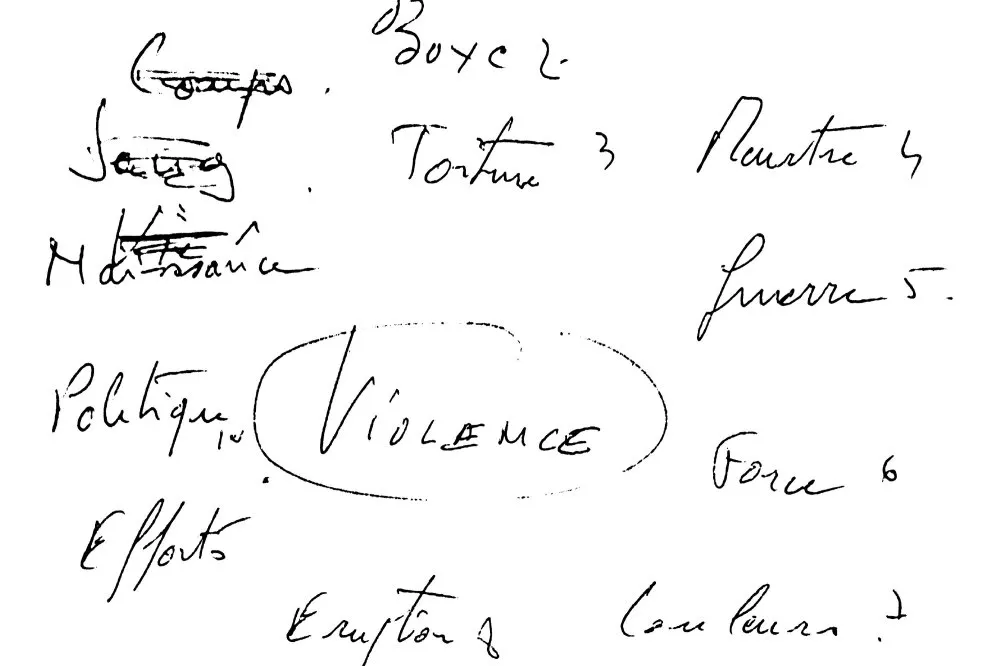 Boxe 2
Coups.
Sang
Torture 3
Meurtre 4
Naissance
Guerre 5.
Politique 10
VIOLENCE
Force 6
Efforts
Eruption 8
Couleurs 7